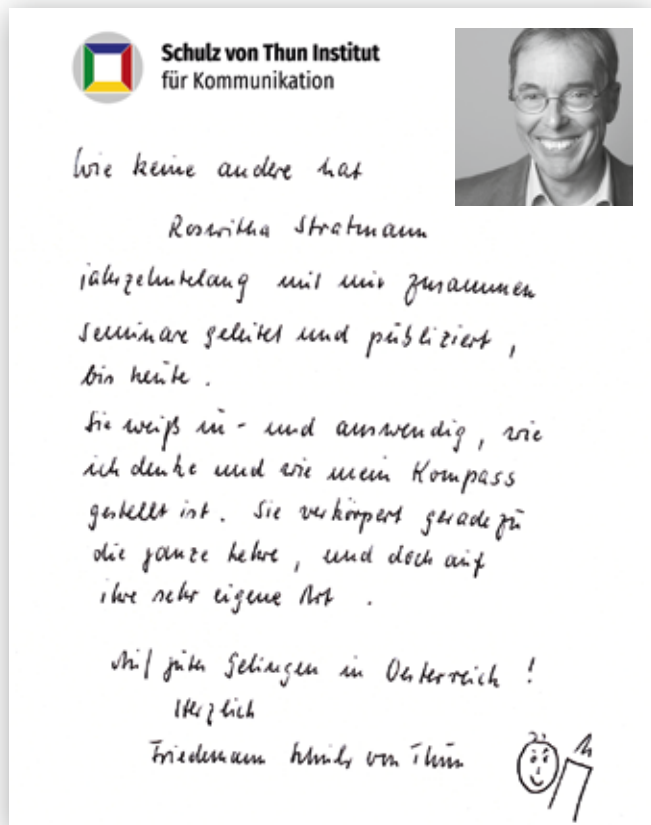 Schulz von Thun Institut
für Kommunikation
Wie keine andere hat
Roswitha Stratmann
jahrzehntelang mit mir zusammen
Seminare geleitet und publiziert,
bis heute.
Sie weiß in- und auswendig, wie
ich denke und wie mein Kompass
gestellt ist. Sie verkörpert geradezu
die ganze Lehre, und doch auf
ihre sehr eigene Art.
Auf gutes Gelingen in Oesterreich!
Herzlich
Friedemann Schulz von Thun